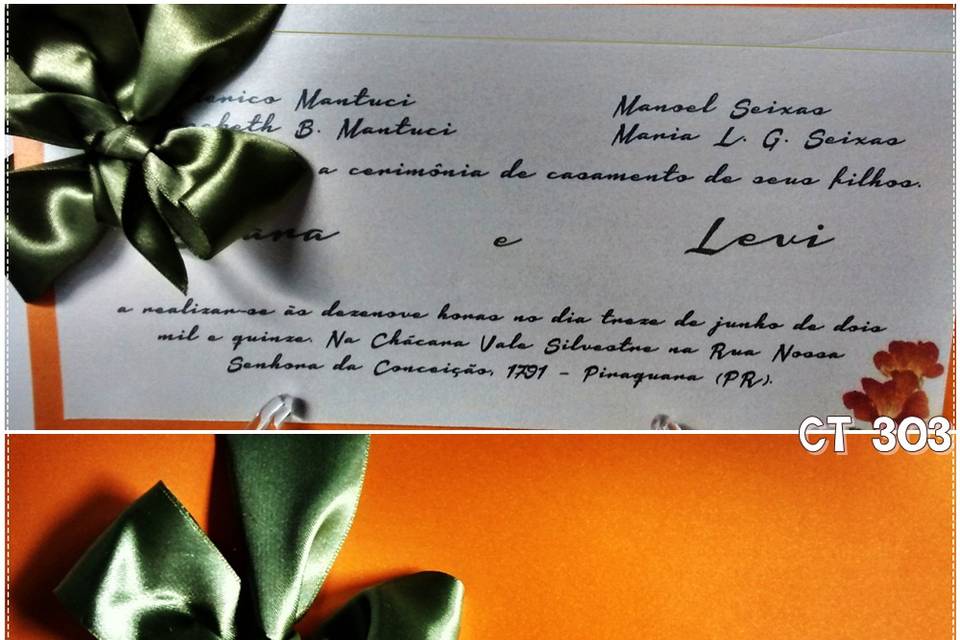 Mantuci
B. Mantuci
Manoel Seixas
Maria L. G. Seixas
a cerimônia de casamento de seus filhos.
e
Levi
a realizar-se às dezenove horas no dia treze de junho de dois
mil e quinze. Na Chácara Vale Silvestre na Rua Nossa
Senhora da Conceição, 1791 - Piraquara (PR).
CT 303